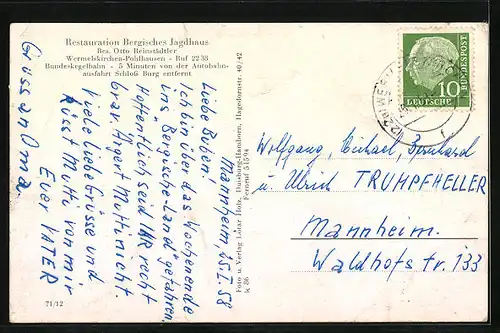 Restauration Bergisches Jagdhaus
Bes. Otto Reinstädtler
Wermelskirchen-Pohlhausen - Ruf 2238
Bundeskegelbahn - 5 Minuten von der Autobahn-
ausfahrt Schloß Burg entfernt
Mannheim, 25.I.58
Liebe Buben,
ich bin über das Wochenende
ins „Bergische-Land“ gefahren
Hoffentlich seid IHR recht
brav. Ärgert Mutti nicht.
Viele liebe Grüsse und
küsst Mutti von mir
Euer VATER
Gruss an Oma
71/12
Foto u. Verlag Lothar Holz, Duisburg-Hamborn, Hagedornstr. 40/42
Fernruf 51594
k 86
DEUTSCHE
BUNDESPOST
10
Wolfgang, Michael, Bernhard
u. Ulrich TRUMPFHELLER
Mannheim.
Waldhofstr. 133